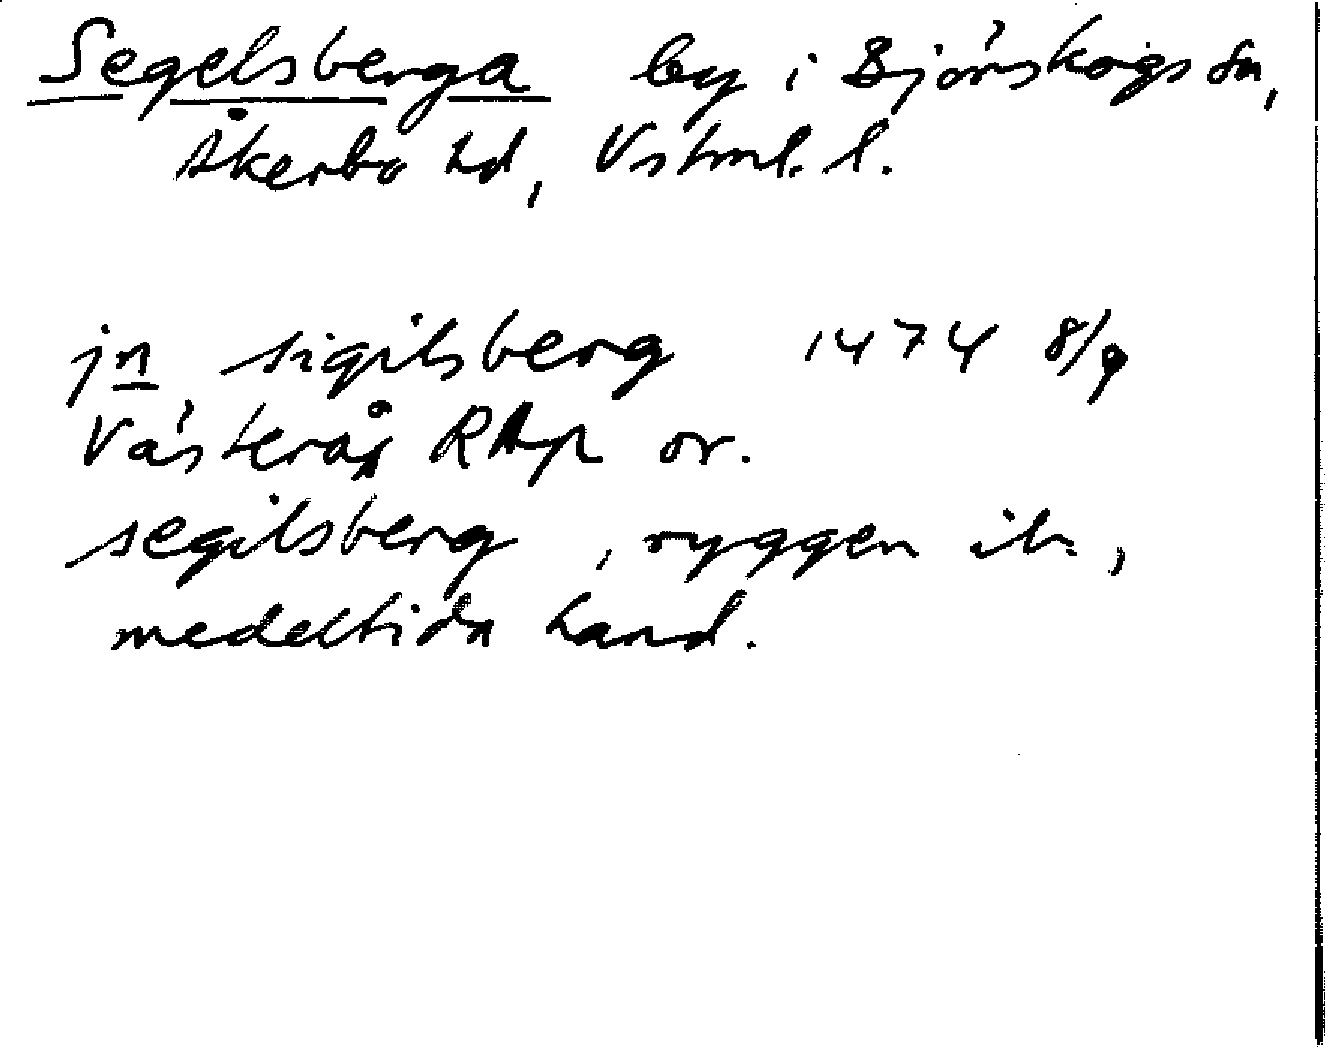 Segelsberga by i Björskogs sn,
Åkerbo hd, Vstml. l.
jn sigilsberg 1474 8/9
Västerås RAp or.
segilsberg, ryggen ib.,
medeltida hand.